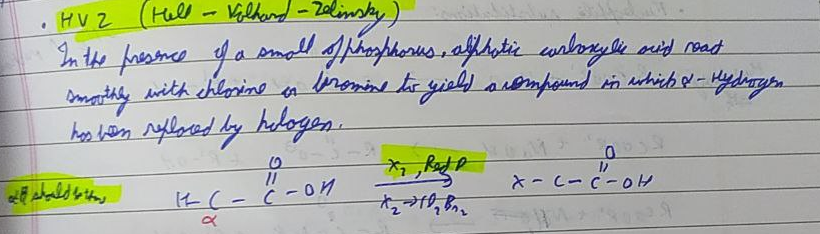 • HVZ (Hell - Volhard - Zelinsky)
In the presence of a small of phosphorus, aliphatic carboxylic acid react
smoothly with chlorine or bromine to yield a compound in which α - Hydrogen
has been replaced by halogen.
O O
|| X₂, Red P ||
αH should be there H C - C - OH → X - C - C - OH
α X₂ → Cl₂, Br₂